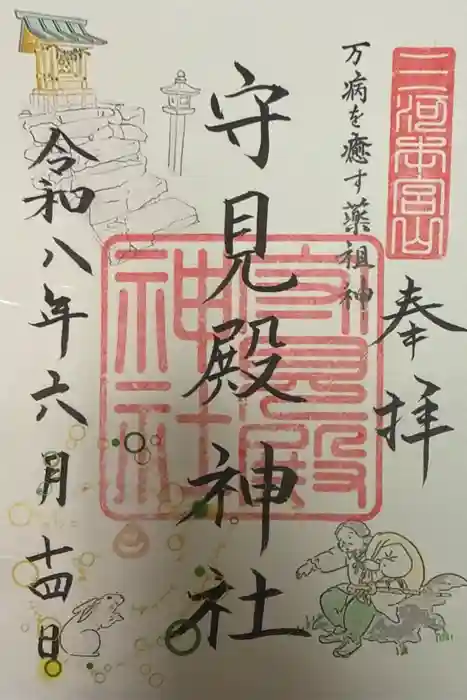 三河本宮山
奉拝
万病を癒す薬祖神
守見殿神社
守見殿
神社
令和八年六月十四日